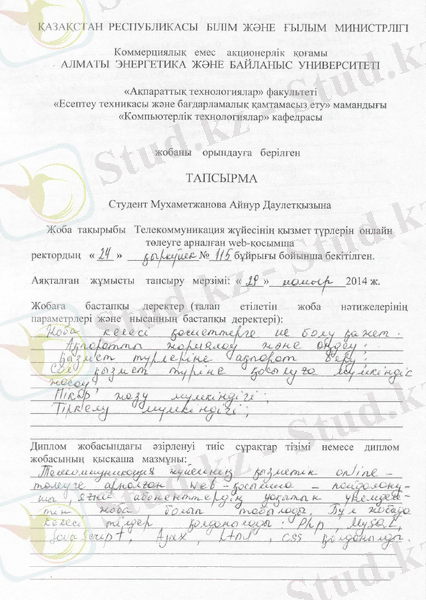 ҚАЗАҚСТАН РЕСПУБЛИКАСЫ БІЛІМ ЖӘНЕ ҒЫЛЫМ МИНИСТРЛІГІ
Коммерциялық емес акционерлік қоғамы
АЛМАТЫ ЭНЕРГЕТИКА ЖӘНЕ БАЙЛАНЫС УНИВЕРСИТЕТІ
«Ақпараттық технологиялар» факультеті
«Есептеу техникасы және бағдарламалық қамтамасыз ету» мамандығы
«Компьютерлік технологиялар» кафедрасы
жобаны орындауға берілген
ТАПСЫРМА
Студент Мухаметжанова Айнур Даулетқызына
Жоба тақырыбы Телекоммуникация жүйесінің қызмет түрлерін онлайн
төлеуге арналған web-қосымша
ректордың « 24 » қыркүйек № 115 бұйрығы бойынша бекітілген.
Аяқталған жұмысты тапсыру мерзімі: « 29 » мамыр 2014 ж.
Жобаға бастапқы деректер (талап етілетін жоба нәтижелерінің
параметрлері және нысанның бастапқы деректері):
Жоба келесі қасиеттерге ие болу қажет:
Ақпаратты жариялау және өңдеу;
Қызмет түрлеріне ақпарат беру;
Сол қызмет түріне қосылуға мүмкіндік
жасау;
Пікір жазу мүмкіндігі;
Тіркелу мүмкіндігі;
Диплом жобасындағы әзірленуі тиіс сұрақтар тізімі немесе диплом
жобасының қысқаша мазмұны:
Телекоммуникация жүйесінің қызметін online-
төлеуге арналған web-қосымша –
абоненттердің уақытын
жоба болып табылады. Бұл жобада
келесі тілдер қолданылды: Php, MySQL,
JavaScript, Ajax, CSS қолданылды.
Stud.kz - Stud.kz
Stud.kz - Stud.kz
Stud.kz - Stud.kz